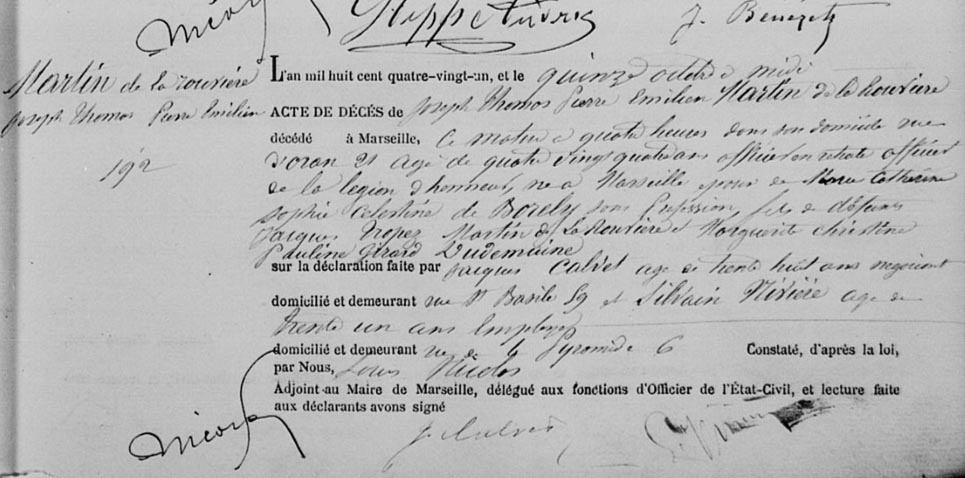 J. Bénézet
Martin de la rouvière
Joseph Thomas Pierre Emilien
192
L'an mil huit cent quatre-vingt-un, et le quinze octobre midi
ACTE DE DÉCÉS de Joseph Thomas Pierre Emilien Martin de la Rouvière
décédé à Marseille, ce matin a quatre heures dans son domicile rue
d'oran 21 agé de quatre vingt quatre ans officier en retraite officier
de la legion d'honneur, né a Marseille epoux de Marie Catherine
Sophie Celestine de Borely sans Profession, fils de défunts
Jacques Tropez Martin de La Rouvière et Marguerite Christine
Pauline Girard Dudemaine
sur la déclaration faite par Jacques Calvet agé de trente huit ans negociant
domicilié et demeurant rue St Basile 59 et Silvain Rivière agé de
trente un ans Employé
domicilié et demeurant rue de la Pyramide 6 Constaté, d'après la loi,
par Nous, Louis Nicolas
Adjoint au Maire de Marseille, délégué aux fonctions d'Officier de l'État-Civil, et lecture faite
aux déclarants avons signé